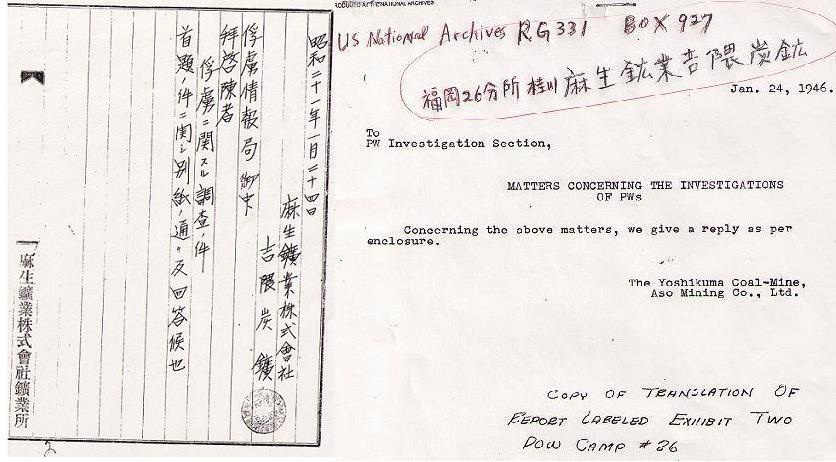 昭和二十一年一月二十四日
麻生鑛業株式會社
吉隈炭鑛
俘虜情報局 御中
拝啓陳者
俘虜ニ関スル調査ノ件
首題ノ件ニ関シ別紙ノ通リ及回答候也
麻生鑛業株式會社鑛業所
RODUCED AT THE NATIONAL ARCHIVES
US National Archives RG 331 BOX 927
福岡26分所 桂川 麻生鉱業吉隈炭鉱
Jan. 24, 1946.
To
PW Investigation Section,
MATTERS CONCERNING THE INVESTIGATIONS
OF PWs
Concerning the above matters, we give a reply as per
enclosure.
The Yoshikuma Coal-Mine,
Aso Mining Co., Ltd.
COPY OF TRANSLATION OF
REPORT LABELED EXHIBIT TWO
POW CAMP # 26